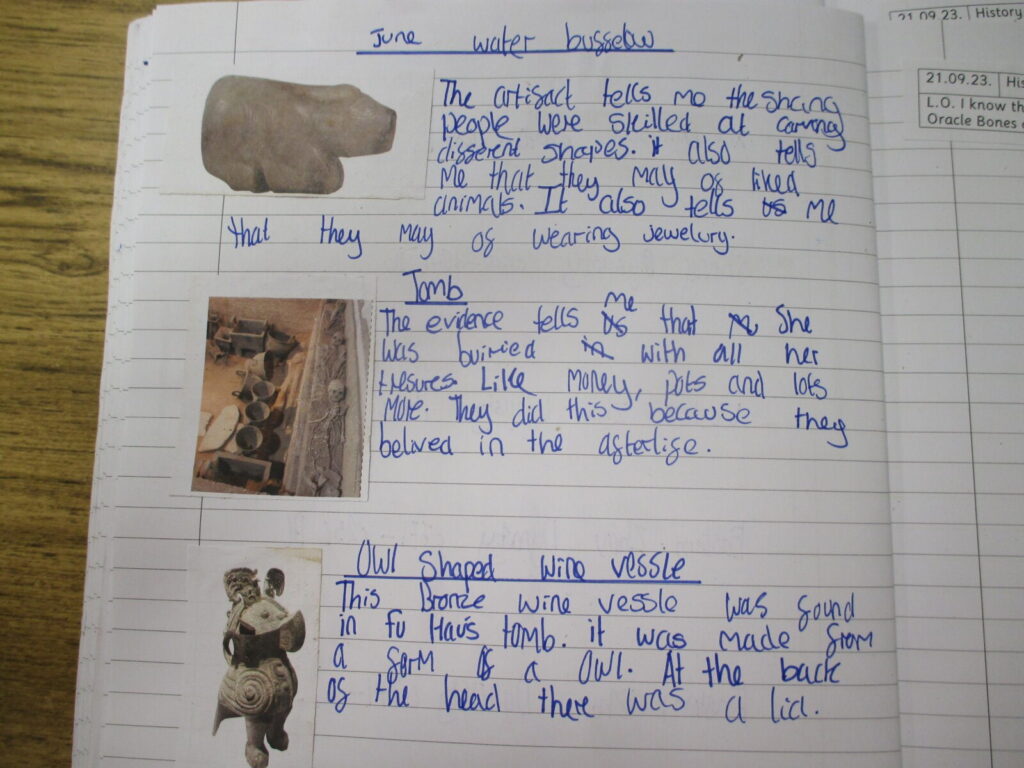 June water busselow
The artisact tells me the shang
people were skilled at carving
disserent shapes. it also tells
me that they may of liked
animals. It also tells me
that they may of wearing jewelury.
Tomb
Me
The evidence tells that She
was buiried with all her
tresures Like money, pots and lots
more. They did this because they
belived in the afterlife.
Owl Shaped wine vessle
This Bronze wine vessle was found
in fu Hau's tomb. it was made from
a form of a Owl. At the back
of the head there was a lid.
21.09.23. History
21.09.23. His
L.O. I know th
Oracle Bones